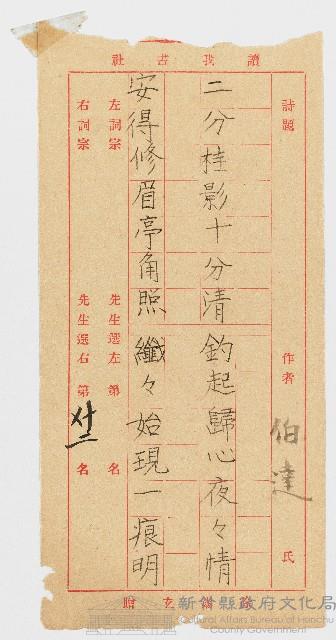 社書我讀
詩題
作者 伯達 氏
二分桂影十分清釣起歸心夜々情
安得修眉亭角照纖々始現一痕明
左詞宗 先生選左第 名
右詞宗 先生選右第 廿二 名
贈
新竹縣政府文化局
Cultural Affairs Bureau of Hsinchu County Government